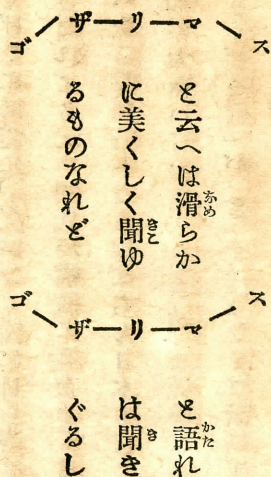 ゴザリマス
と云へは滑らか
に美くしく聞ゆ
るものなれど
ゴザリマス
と語れ
は聞き
ぐるし